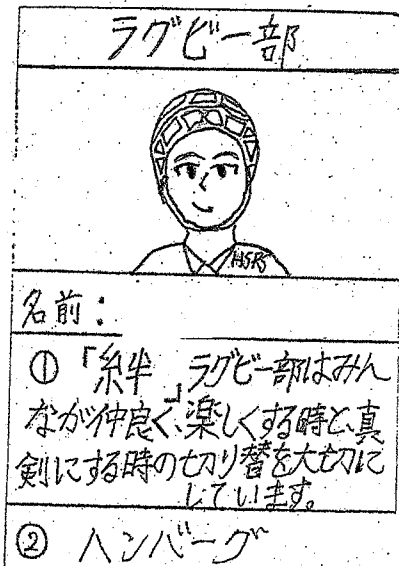 ラグビー部
HSRS
名前：
① 「絆」 ラグビー部はみん
なが仲良く、楽しくする時と、真
剣にする時の切り替を大切に
しています。
② ハンバーグ